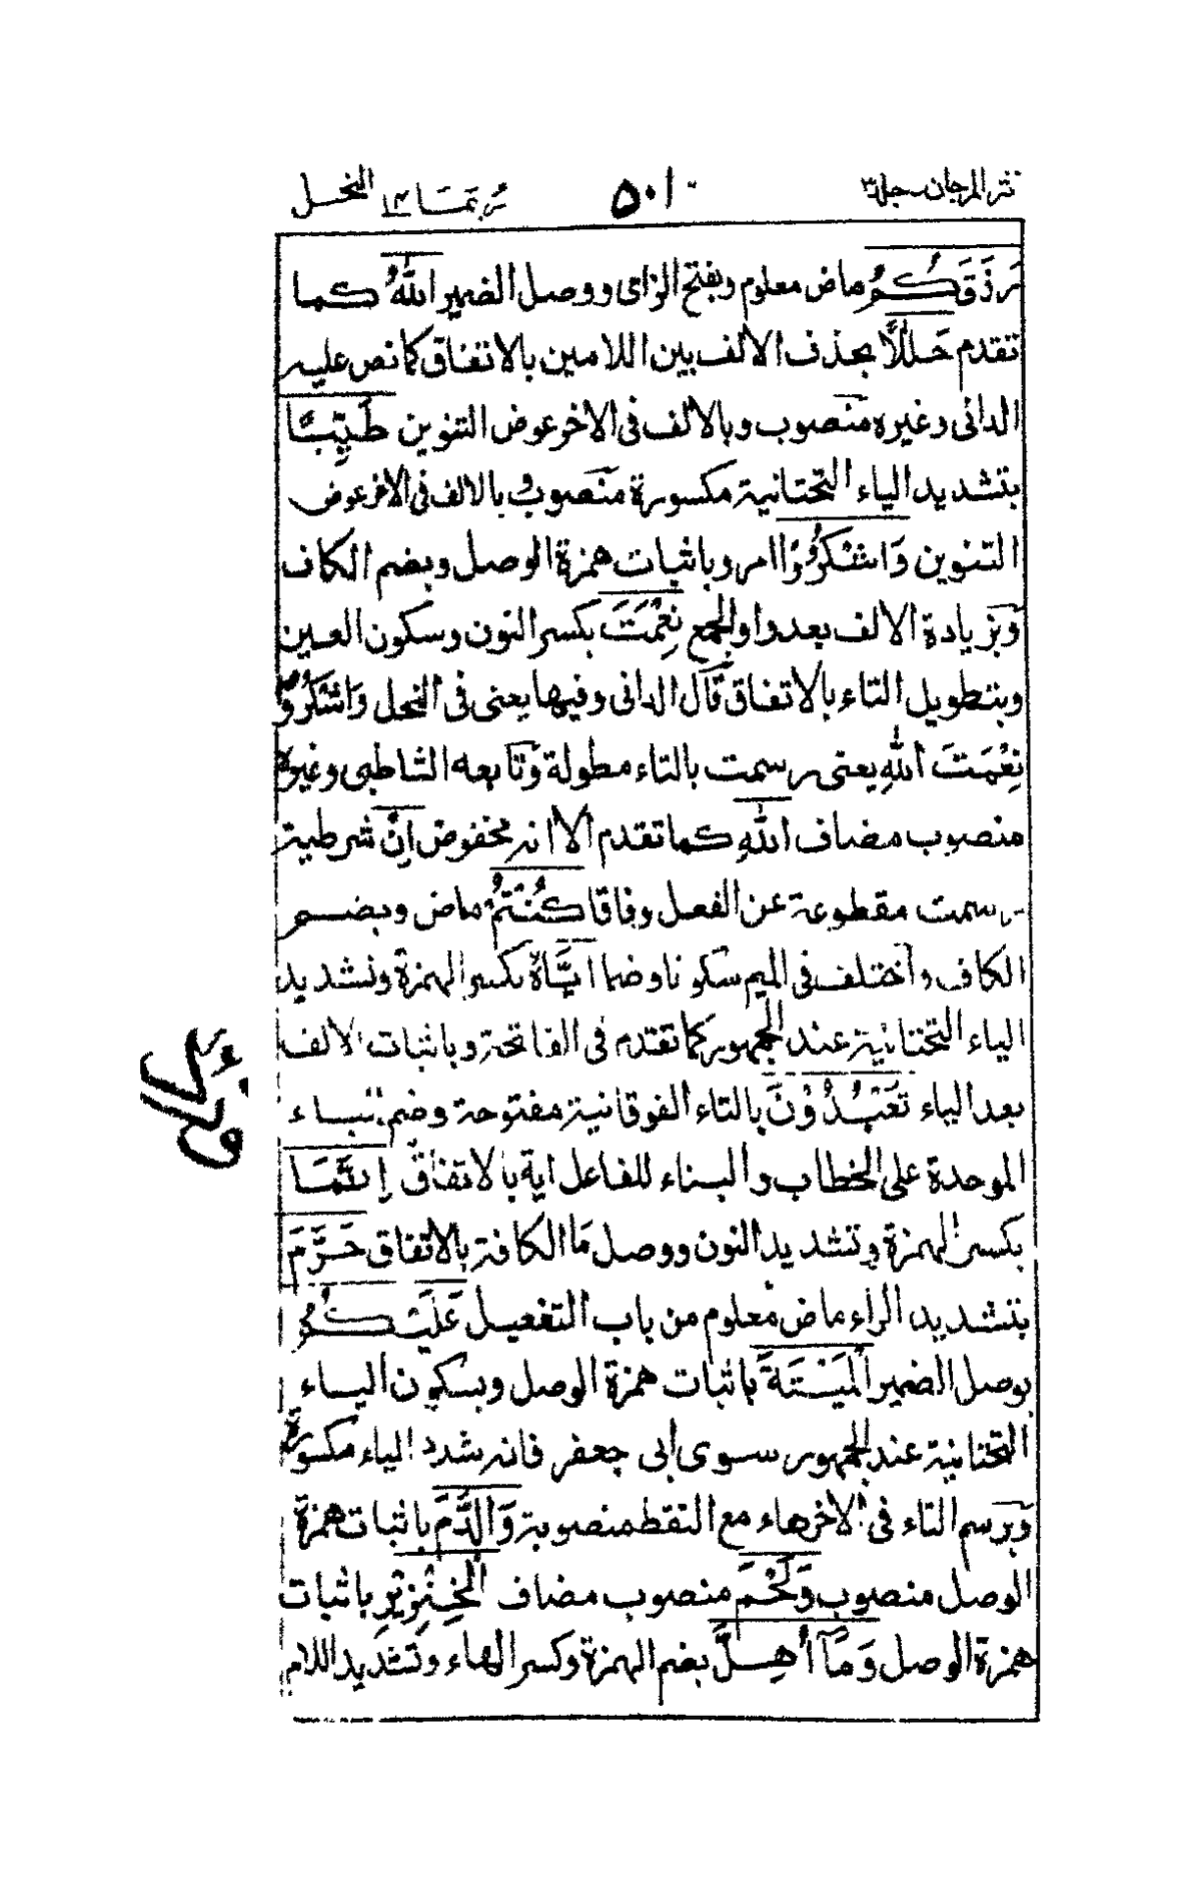 نثر المرجان جلد٣ ٥٠١ ربما ١٤ النحل
رَزَقَكُمُ ماض معلوم وبفتح الزاى ووصل الضمير اللهُ كما
تقدم حَلٰلًا بحذف الالف بين اللامين بالاتفاق كما نص عليه
الدانى وغيره منصوب وبالالف فى الاخر عوض التنوين طَيِّبًا
بتشديد الياء التحتانية مكسورة منصوب بالالف فى الاخر عوض
التنوين وَاشْكُرُوْا امر وباثبات همزة الوصل وبضم الكاف
وبزيادة الالف بعد واو الجمع نِعْمَتَ بكسر النون وسكون العين
وبتطويل التاء بالاتفاق قال الدانى وفيها يعنى فى النحل وَاشْكُرُوْا
نِعْمَتَ اللهِ يعنى رسمت بالتاء مطولة وتابعه الشاطبى وغيره
منصوب مضاف اللهِ كما تقدم الا انه مخفوض اِنْ شرطية
رسمت مقطوعة عن الفعل وفاقا كُنْتُمْ ماض وبضم
الكاف واختلف فى الميم سكونا وضما اِيَّاهُ بكسر الهمزة وتشديد
الياء التحتانية عند الجمهور كما تقدم فى الفاتحة وباثبات الالف
بعد الياء تَعْبُدُوْنَ بالتاء الفوقانية مفتوحة وضم الباء
الموحدة على الخطاب والبناء للفاعل اية بالاتفاق اِنَّمَا
بكسر الهمزة وتشديد النون ووصل مَا الكافة بالاتفاق حَرَّمَ
بتشديد الراء ماض معلوم من باب التفعيل عَلَيْكُمُ
بوصل الضمير الْمَيْتَةَ باثبات همزة الوصل وبسكون الياء
التحتانية عند الجمهور سوى ابى جعفر فانه شدد الياء مكسورة
وبرسم التاء فى الاخر هاء مع النقط منصوبة وَالدَّمَ باثبات همزة
الوصل منصوب وَلَحْمَ منصوب مضاف الْخِنْزِيْرِ باثبات
همزة الوصل وَمَآ اُهِلَّ بضم الهمزة وكسر الهاء وتشديد اللام